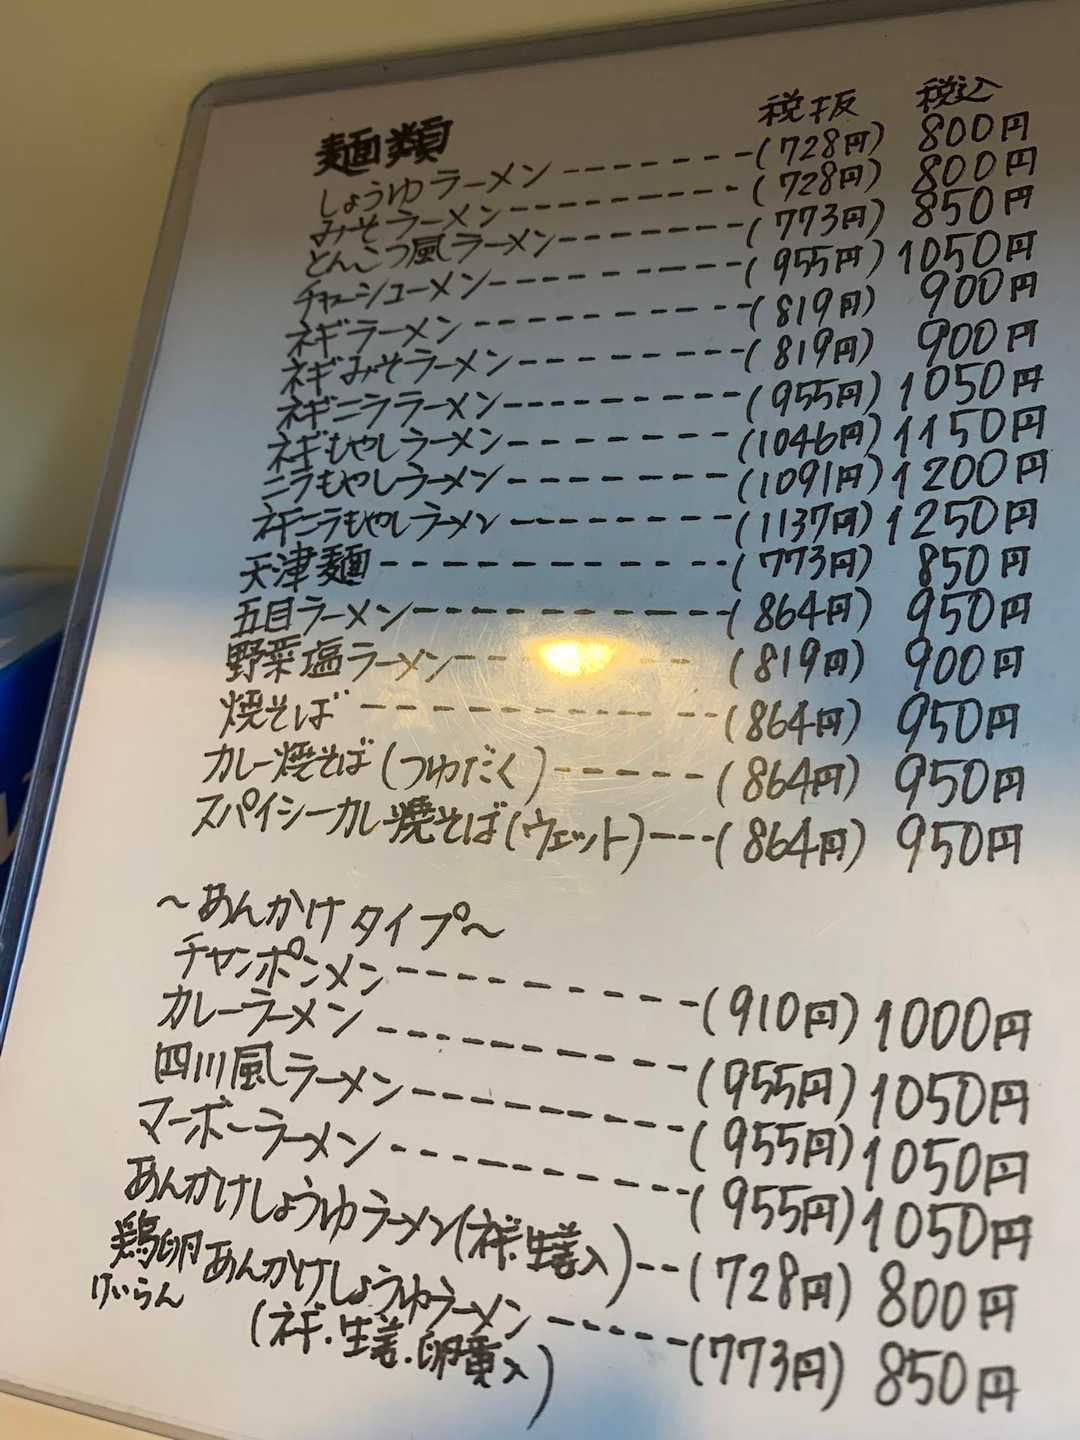 税抜 税込
麺類
しょうゆラーメン -------(728円) 800円
みそラーメン ---------(728円) 800円
とんこつ風ラーメン -------(773円) 850円
チャーシューメン ---------(955円) 1050円
ネギラーメン ----------(819円) 900円
ネギみそラーメン ---------(819円) 900円
ネギニララーメン ---------(955円) 1050円
ネギもやしラーメン --------(1046円) 1150円
ニラもやしラーメン --------(1091円) 1200円
ネギニラもやしラーメン --------(1137円) 1250円
天津麺 ------------(773円) 850円
五目ラーメン ------------(864円) 950円
野菜塩ラーメン -------(819円) 900円
焼そば ------------(864円) 950円
カレー焼そば(つゆだく) ------(864円) 950円
スパイシーカレー焼そば(ウェット) ---(864円) 950円
~あんかけタイプ~
チャンポンメン -----------(910円) 1000円
カレーラーメン ------------(955円) 1050円
四川風ラーメン -----------(955円) 1050円
マーボーラーメン -----------(955円) 1050円
あんかけしょうゆラーメン(ネギ・生姜入) --(728円) 800円
鶏卵あんかけしょうゆラーメン -----(773円) 850円
けいらん
(ネギ・生姜・卵黄入)